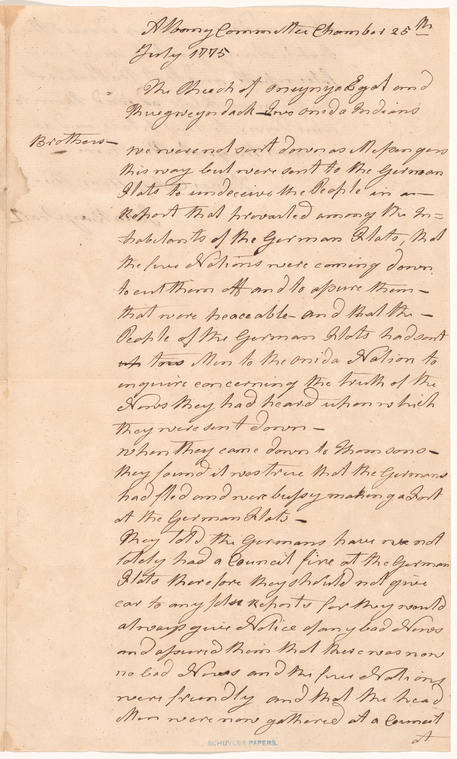 Albany Committee Chamber 25th
July 1775
The Speech of
and
two onida Indians
Brothers—
we were not sent down as Messengers
this way but were sent to the German
Flats to undeceive the People in a—
Report that prevailed among the In=
habitants of the German Flats, that
the five Nations were coming down
to cut them off and to assure them—
that were peaceable— and that the—
People of the German Flats had sent
two Men to the onida Nation to
enquire concerning the truth of the
News they had heard upon which
they were sent down—
when they came down to Thomsons—
they found it was true that the Germans
had fled and were bussy making a Fort
at the German Flats—
They told the Germans have we not
lately had a Council fire at the German
Flats therefore they should not give
ear to any false Reports for they would
always give Notice of any bad News
and assured them that there was now
no bad News and the five Nations
were friendly and that the head
Men were now gathered at a Council
at
SCHUYLER PAPERS.